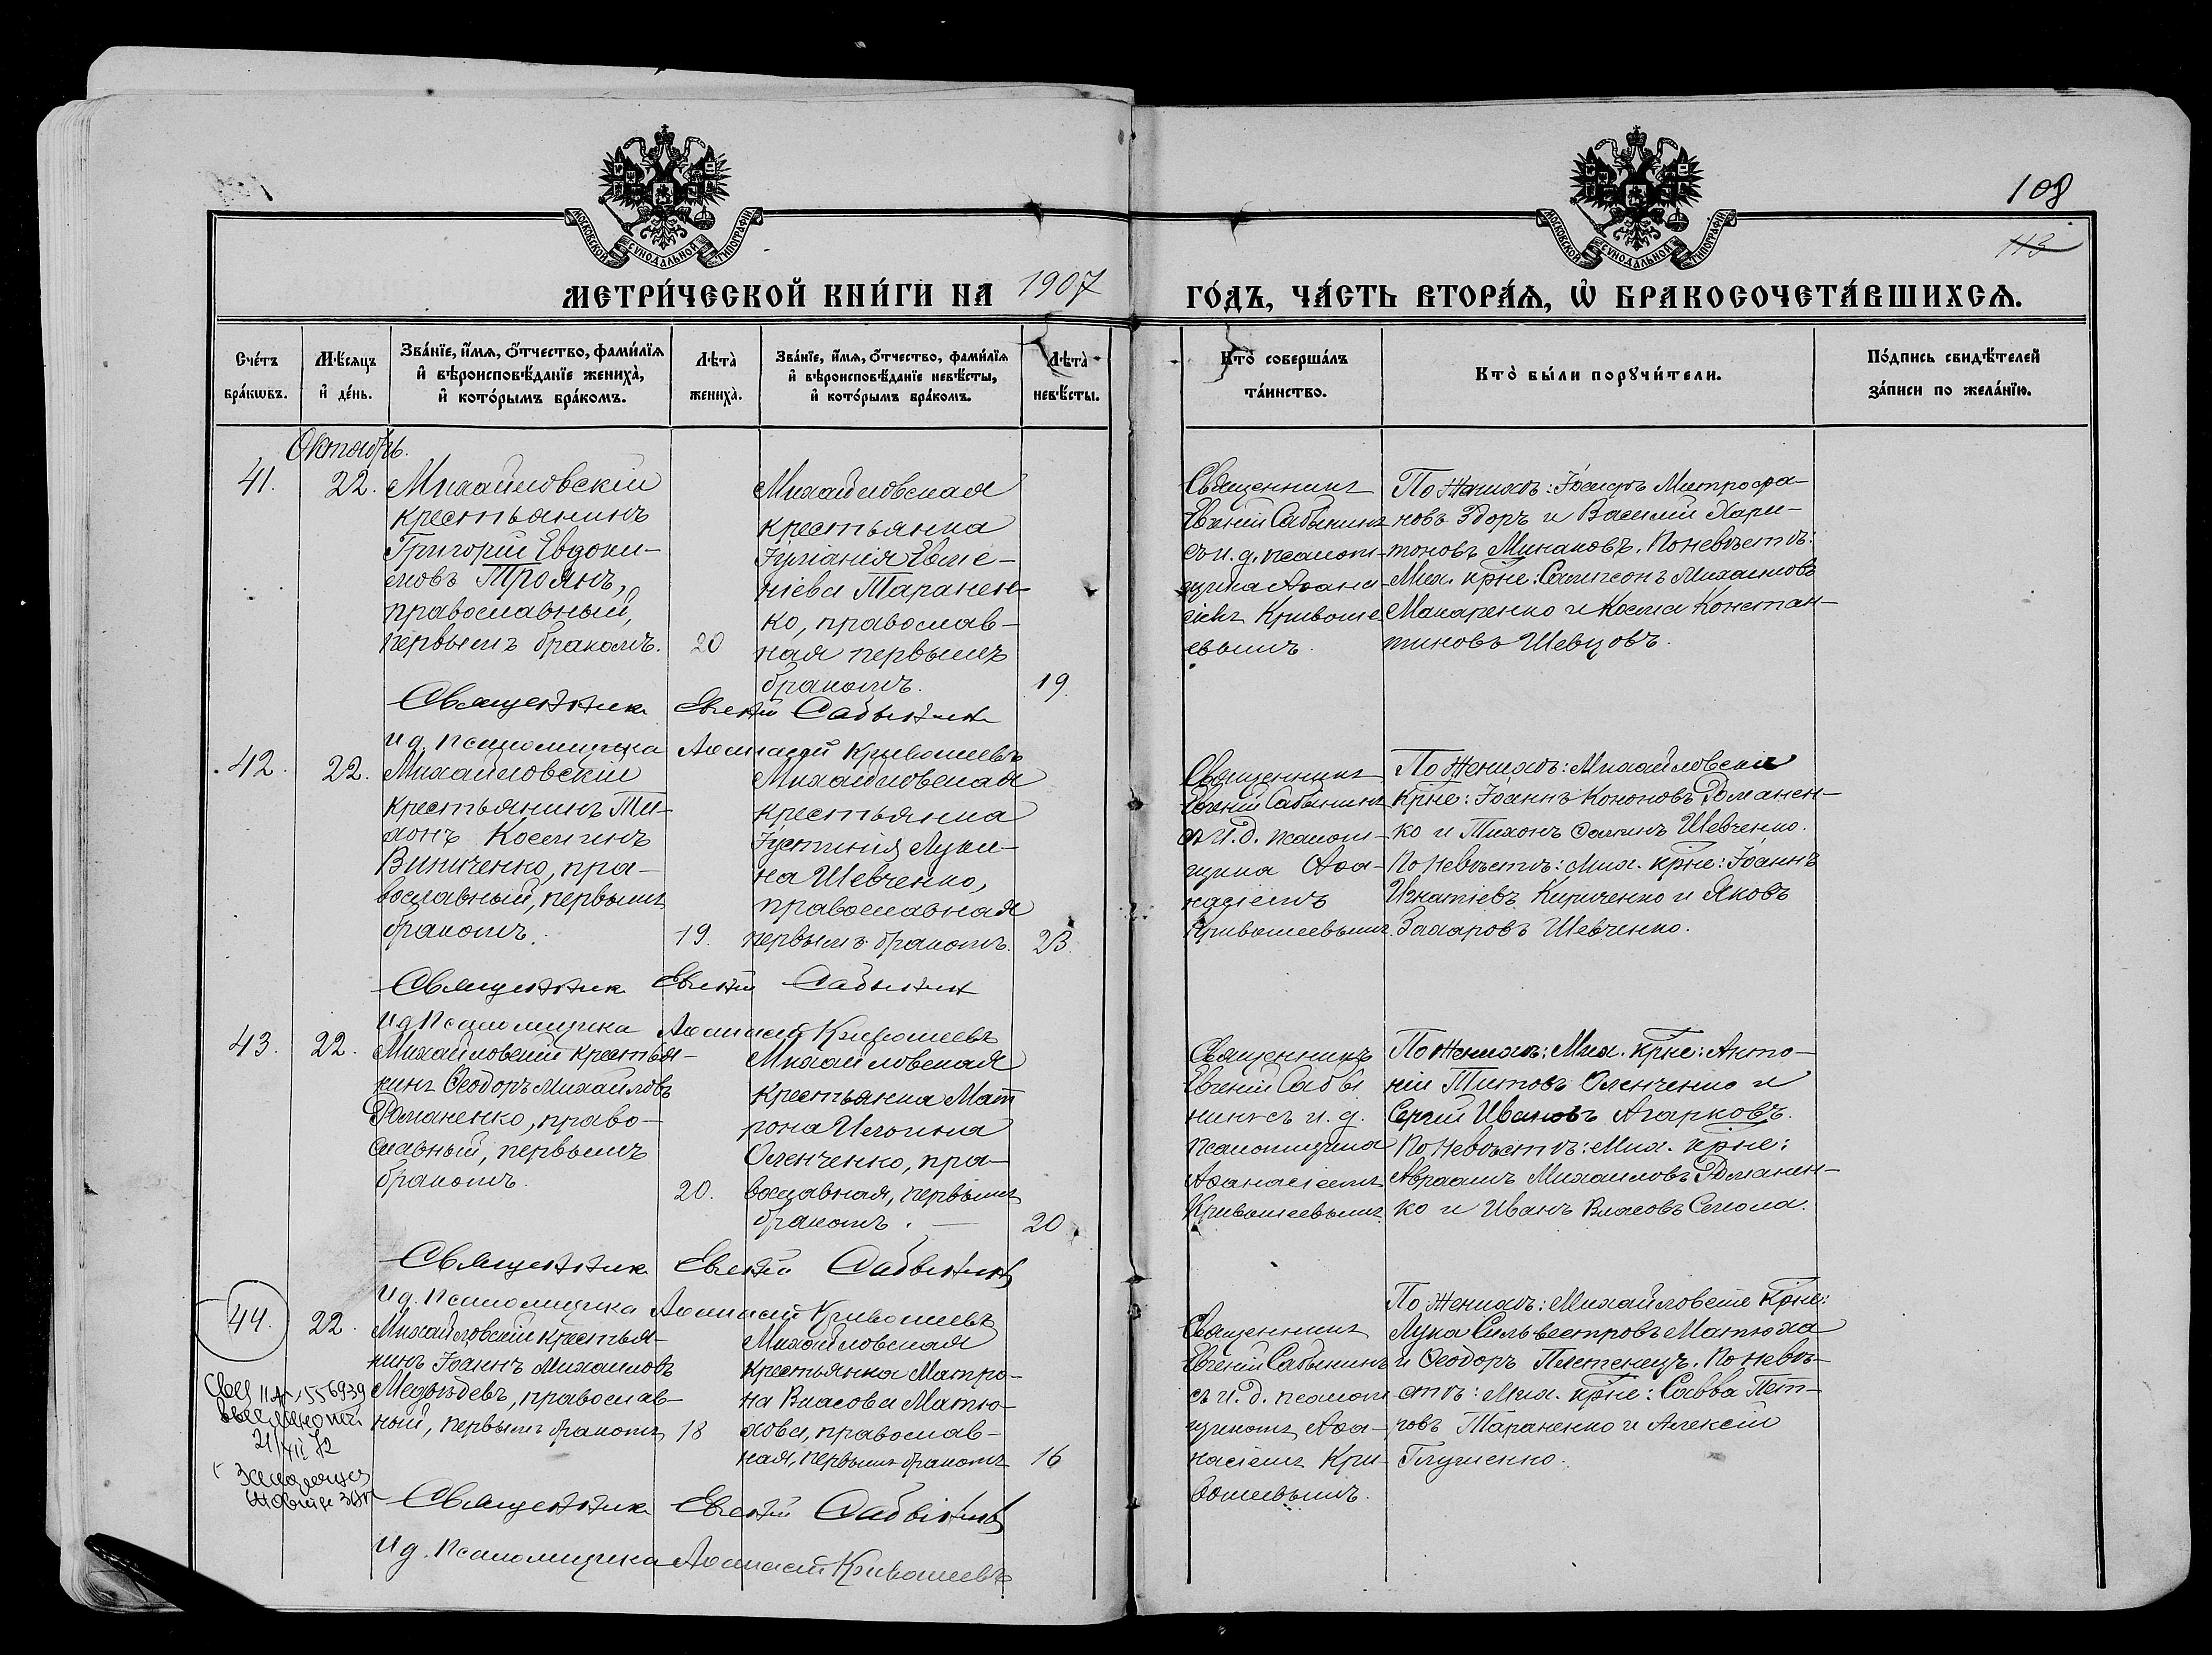 108
113
МОСКОВСКОЙ СУНОДАЛЬНОЙ ТИПОГРАФІИ
МОСКОВСКОЙ СУНОДАЛЬНОЙ ТИПОГРАФІИ
МЕТРИ́ЧЕСКОЙ КНИ́ГИ НА 1907 ГО́ДЪ, ЧА́СТЬ ВТОРА́Ѧ, Ѡ҆ БРАКОСОЧЕТА́ВШИХСѦ.
Сче́тъ бра́кѡвъ.
Мѣ́сяцъ и҆ де́нь.
Зва́нїе, и҆́мѧ, ѻ҆́тчество, фами́лїѧ
и҆ вѣроисповѣ́данїе жениха̀,
и҆ кото́рымъ бра́комъ.
Лѣ́та̀ жениха̀.
Зва́нїе, и҆́мѧ, ѻ҆́тчество, фами́лїѧ
и҆ вѣроисповѣ́данїе невѣ́сты,
и҆ кото́рымъ бра́комъ.
Лѣ́та̀ невѣ́сты.
Кто̀ соверша́лъ
та́инство.
Кто̀ бы́ли порꙋчи́тели.
По́дпись свидѣ́телей
за́писи по жела́нїю.
Октябрь.
41.
22.
Михайловскій
крестьянинъ
Григорій Евдоки-
мовъ Троянъ,
православный,
первымъ бракомъ.
20
Михайловская
крестьянка
Іуліанія Евме-
ніева Таранен-
ко, православ-
ная первымъ
бракомъ.
19.
Священникъ
Евгеній Сабынинъ
съ и. д. псалом-
щика Афана-
сіемъ Кривоше-
евымъ.
По Женихѣ: Іосифъ Митрофа-
новъ Здоръ и Василій Хари-
тоновъ Минаковъ. По невѣстѣ:
Мих. крне: Сампсонъ Михаиловъ
Макаренко и Косма Констан-
тиновъ Шевцовъ.
Священник Евгений Сабынин
И д. Псаломщика Афанасій Кривошеевъ
42.
22.
Михайловскій
крестьянинъ Ти-
хонъ Косминъ
Виниченко, пра-
вославный, первымъ
бракомъ.
19.
Михайловская
крестьянка
Іустинія Луки-
на Шевченко,
православная
первымъ бракомъ.
23.
Священникъ
Евгеній Сабынинъ
съ И. д. псалом-
щика Афа-
насіемъ
Кривошеевымъ.
По Женихѣ: Михайловскіе
крне: Іоаннъ Кононовъ Романен-
ко и Тихонъ Фоминъ Шевченко.
По Невѣстѣ: Мих. крне: Іоаннъ
Игнатіевъ Кириченко и Яковъ
Захаровъ Шевченко.
Священник Евгений Сабынин
И д Псаломщика Афанасій Кривошеевъ
43.
22.
Михайловскій крестья-
нинъ Ѳеодоръ Михаиловъ
Романенко, право-
славный, первымъ
бракомъ.
20.
Михайловская
крестьянка Мат
рона Игоина
Оленченко, пра-
вославная, первымъ
бракомъ. —
20.
Священникъ
Евгеній Сабы
нинъ съ и. д.
псаломщика
Афанасіемъ
Кривошеевымъ.
По Женихѣ: Мих. крне: Анто-
ній Титовъ Оленченко и
Сергій Ивановъ Агарковъ.
По Невѣстѣ: Мих. крне:
Авраамъ Михаиловъ Романен-
ко и Иванъ Власовъ Сегола.
Священник Евгений Сабынинъ
И д. Псаломщика Афанасій Кривошеевъ
44.
22.
Михайловскій крестья-
нинъ Іоаннъ Михаиловъ
Медвѣдевъ, православ-
ный, первымъ бракомъ
18
Михайловская
крестьянка Матро-
на Власова Матю-
хова, православ-
ная, первымъ бракомъ
16
Священникъ
Евгеній Сабынинъ
съ И. д. псалом
щикомъ Афа-
насіемъ Кри-
вошеевымъ.
По Женихѣ: Михайловскіе Крне:
Лука Сильвестровъ Матюха
и Ѳеодоръ Плетенецъ. По невѣ-
стѣ: Мих. крне: Савва Пет-
ровъ Тараненко и Алексій
Глущенко.
556939
21/XII 72
Священник Евгений Сабынинъ
И д. Псаломщика Афанасій Кривошеевъ